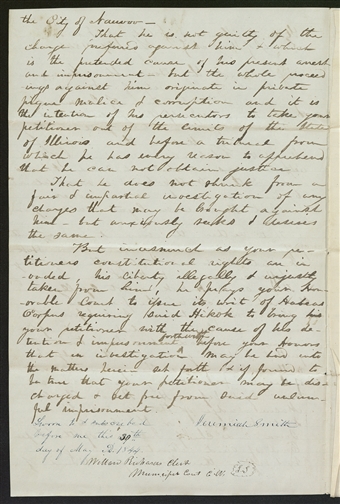 the City of Nauvoo —
That he is not guilty of the
charge preferred against him & which
is the pretended cause of his present arrest
and imprisonment — but the whole proceed
ings against him originate in private
pique malice & corruption and it is
the intention of his persecutors to take your
petitioner out of the limits of the State
of Illinois and before a tribunal from
which he has every reason to apprehend
that he can not obtain justice
That he does not shrink from a
fair & impartial investigation of any
charges that may be brought against
him but anxiously seeks & desires
the same.
But inasmuch as your pe-
titioners constitutional rights are in-
vaded his liberty illegally & unjustly
taken from him, he prays your Hon-
orable Court to issue its writ of Habeas
Corpus requiring said Hikok to bring his
your petitioner with the cause of his de-
tention & imprisonment forthwith before your Honors
that an investigation may be had into
the matters herein set forth & if found to
be true that your petitioner may be dis-
charged & set free from said unlaw-
ful imprisonment.
Sworn to & subscribed Jeremiah Smith
before me this 30th
day of May 1844
Willard Richards Clerk
Municipal Court C. N.